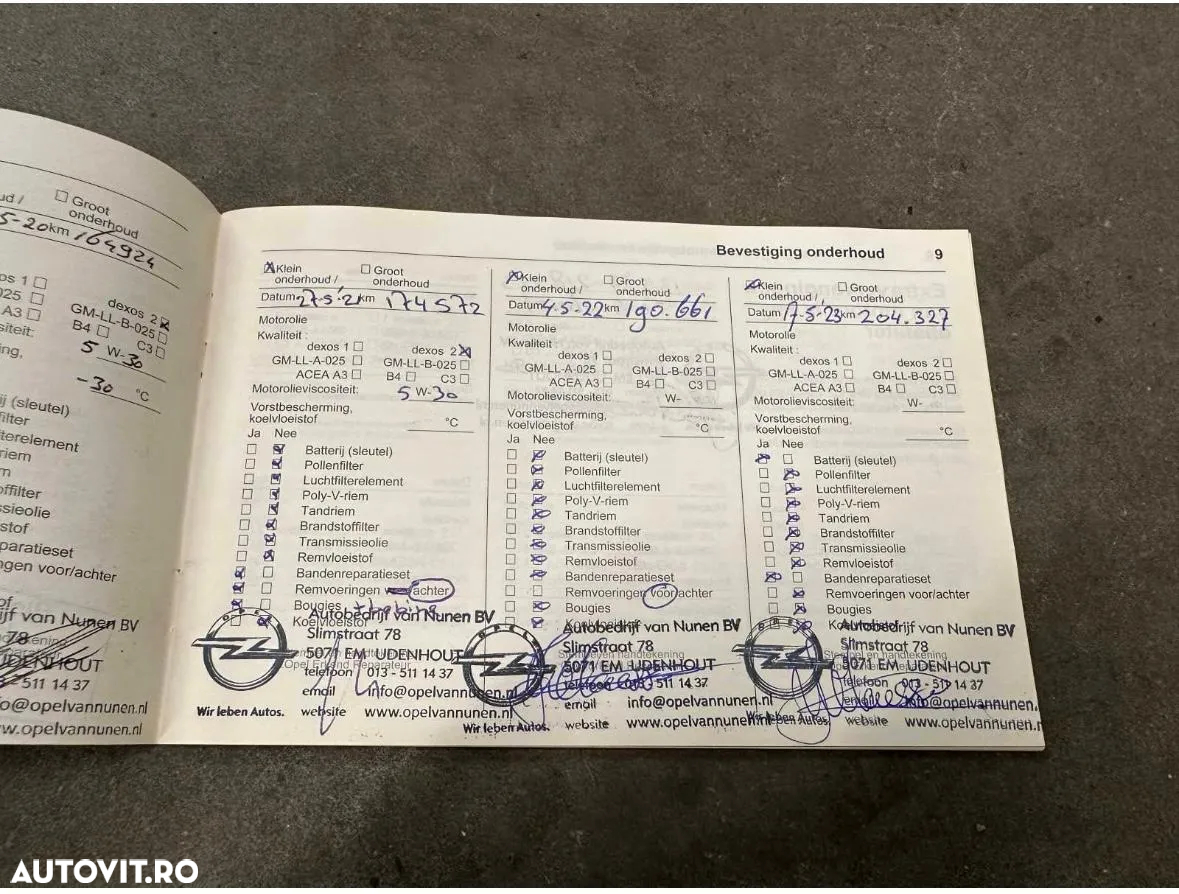 ud /
Groot
onderhoud
5-20 km 164924
dexos 1
dexos 2
025
GM-LL-B-025
A3
B4
C3
siteit:
5 W-30
ing,
-30 °C
ij (sleutel)
filter
terelement
riem
m
offilter
ssieolie
stof
paratieset
ngen voor/achter
of
ijf van Nunen BV
78
UDENHOUT
- 511 14 37
o@opelvannunen.nl
w.opelvannunen.nl
Bevestiging onderhoud 9
Klein
onderhoud /
Groot
onderhoud
Datum 27-5-21 km 174572
Motorolie
Kwaliteit :
dexos 1
dexos 2
GM-LL-A-025
GM-LL-B-025
ACEA A3
B4
C3
Motorolieviscositeit: 5 W-30
Vorstbescherming,
koelvloeistof °C
Ja Nee
Batterij (sleutel)
Pollenfilter
Luchtfilterelement
Poly-V-riem
Tandriem
Brandstoffilter
Transmissieolie
Remvloeistof
Bandenreparatieset
Remvoeringen achter
Bougies
Koelvloeistof
Autobedrijf van Nunen BV
Slimstraat 78
5071 EM UDENHOUT
Opel Erkend Reparateur
telefoon 013 - 511 14 37
email info@opelvannunen.nl
Wir leben Autos. website www.opelvannunen.nl
Klein
onderhoud /
Groot
onderhoud
Datum 4-5-22 km 190.661
Motorolie
Kwaliteit :
dexos 1
dexos 2
GM-LL-A-025
GM-LL-B-025
ACEA A3
B4
C3
Motorolieviscositeit: W-
Vorstbescherming,
koelvloeistof °C
Ja Nee
Batterij (sleutel)
Pollenfilter
Luchtfilterelement
Poly-V-riem
Tandriem
Brandstoffilter
Transmissieolie
Remvloeistof
Bandenreparatieset
Remvoeringen voor/achter
Bougies
Koelvloeistof
OPEL
Autobedrijf van Nunen BV
Slimstraat 78
Stempel en handtekening
5071 EM UDENHOUT
telefoon 013 - 511 14 37
email info@opelvannunen.nl
Wir leben Autos. website www.opelvannunen.nl
Klein
onderhoud /
Groot
onderhoud
Datum 17-5-23 km 204.327
Motorolie
Kwaliteit :
dexos 1
dexos 2
GM-LL-A-025
GM-LL-B-025
ACEA A3
B4
C3
Motorolieviscositeit: W-
Vorstbescherming,
koelvloeistof °C
Ja Nee
Batterij (sleutel)
Pollenfilter
Luchtfilterelement
Poly-V-riem
Tandriem
Brandstoffilter
Transmissieolie
Remvloeistof
Bandenreparatieset
Remvoeringen voor/achter
Bougies
OPEL
Autobedrijf van Nunen BV
Slimstraat 78
Stempel en handtekening
5071 EM UDENHOUT
telefoon 013 - 511 14 37
email info@opelvannunen.
Wir leben Autos. website www.opelvannunen.n
AUTOVIT.RO